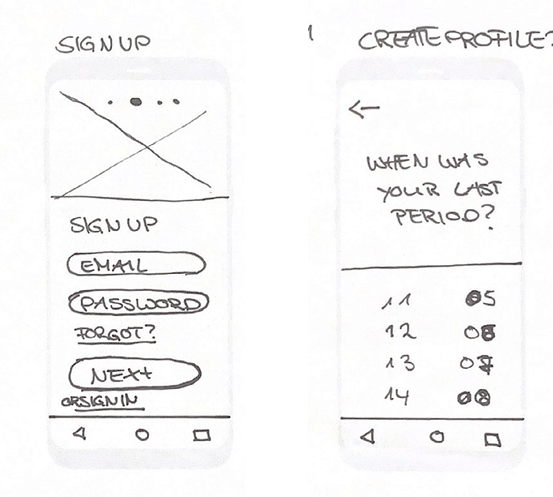 SIGN UP
SIGN UP
EMAIL
PASSWORD
FORGOT?
NEXT
OR SIGN IN
1
CREATE PROFILE?
WHEN WAS
YOUR LAST
PERIOD?
11 05
12 06
13 07
14 08